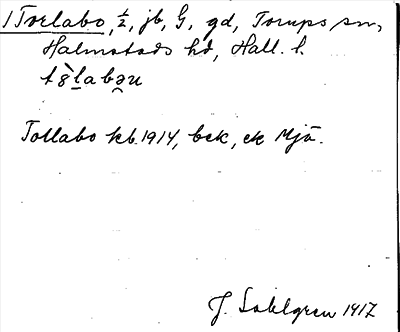 1 Torlabo, 1/2, jb, G, gd, Torups sn,
Halmstads hd, Hall. l.
Tollabo kb 1914, bek, ek Mjö.
J. Sahlgren 1917